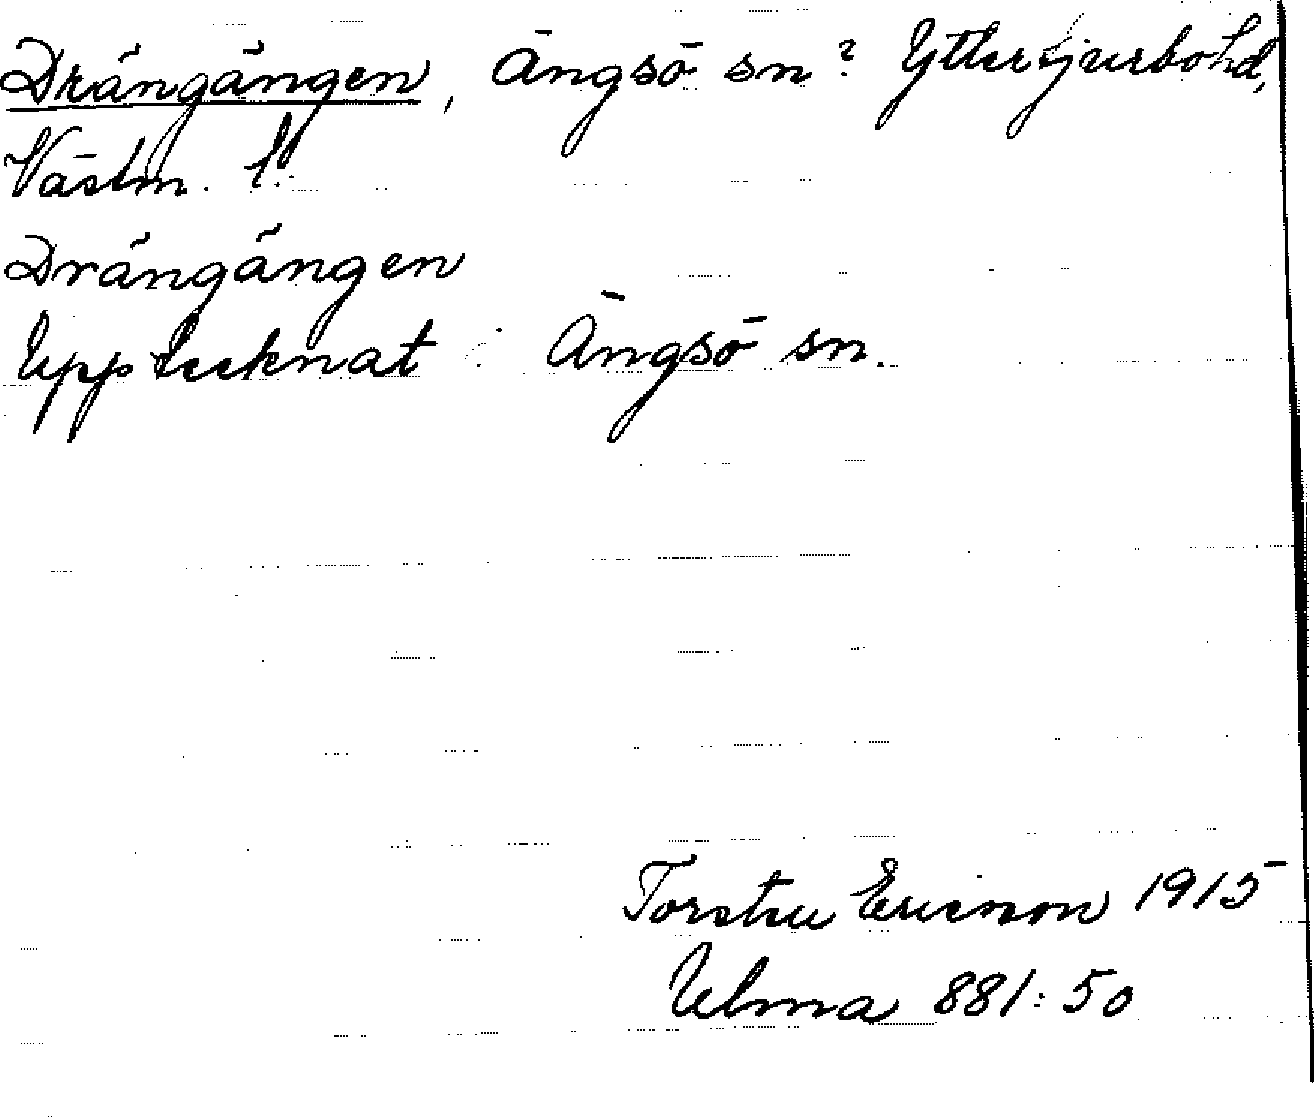 Drängängen, Ängsö sn? Yttertjurbo hd,
Västm. l.
Drängängen
Upptecknat i Ängsö sn.
Torsten Ericsson 1915
Ulma 881:50